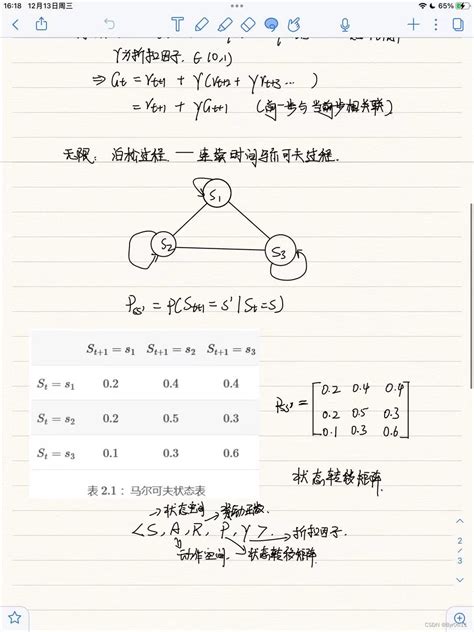 16:18 12月13日周三
65%
γ为折扣因子. ∈(0,1)
⇒ Gt = rt+1 + γ(rt+2 + γrt+3 ...)
= rt+1 + γGt+1 (前一步与当前步相关联)
无限: 泊松过程 — 连续时间马尔可夫过程.
S1
S2
S3
Pss' = P(St+1 = s' | St = s)
St+1 = s1 St+1 = s2 St+1 = s3
St = s1 0.2 0.4 0.4
St = s2 0.2 0.5 0.3
St = s3 0.1 0.3 0.6
表 2.1：马尔可夫状态表
Pss' =
0.2 0.4 0.4
0.2 0.5 0.3
0.1 0.3 0.6
状态转移矩阵.
→状态空间
<S, A, R, P, γ>. →折扣因子.
动作空间. 状态转移矩阵.
2
3